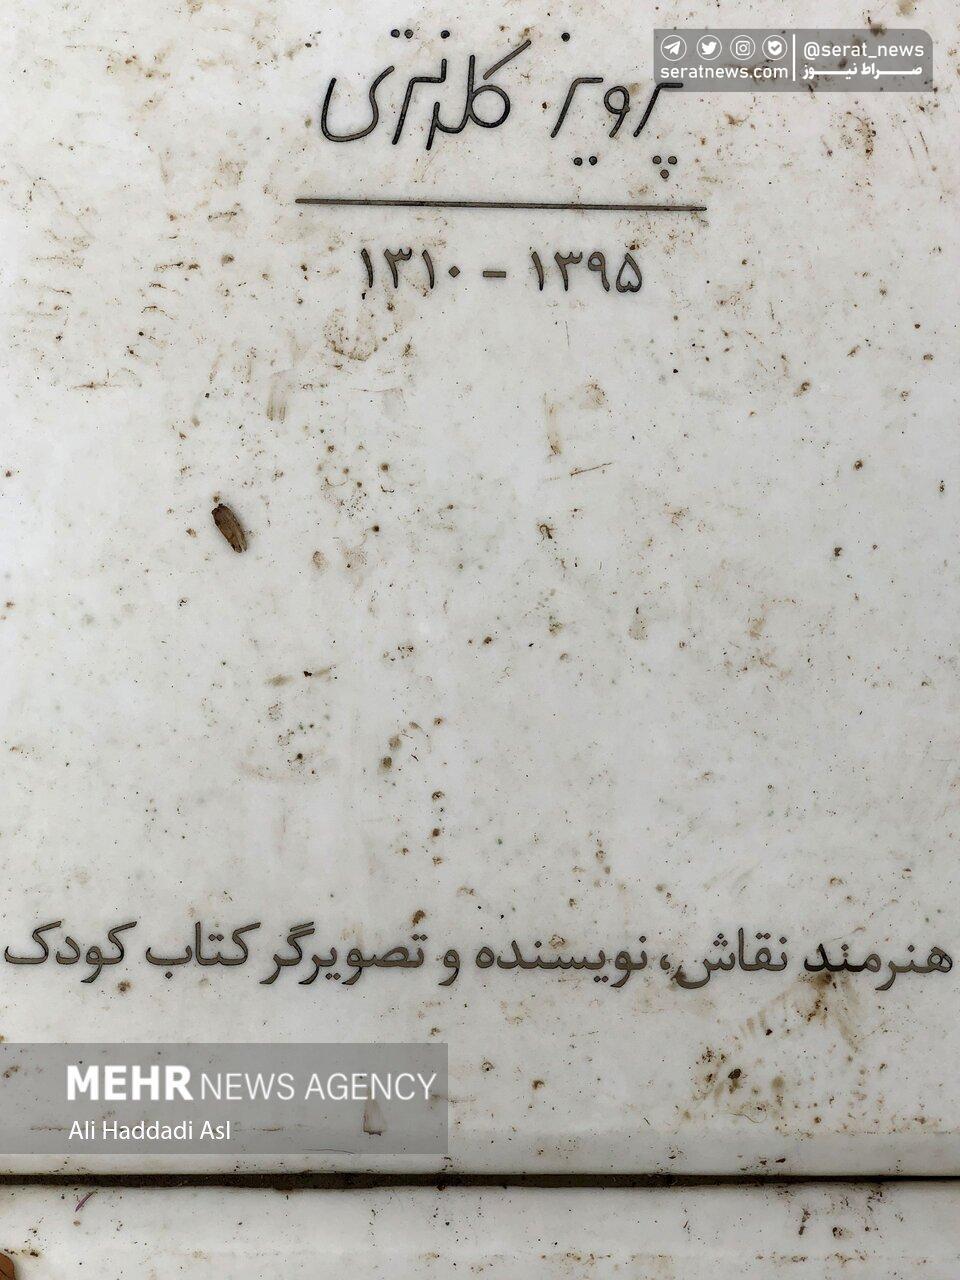 @serat_news
seratnews.com | صــراط نیــوز
پرویز کلانتری
۱۳۱۰ - ۱۳۹۵
هنرمند نقاش، نویسنده و تصویرگر کتاب کودک
MEHR NEWS AGENCY
Ali Haddadi Asl